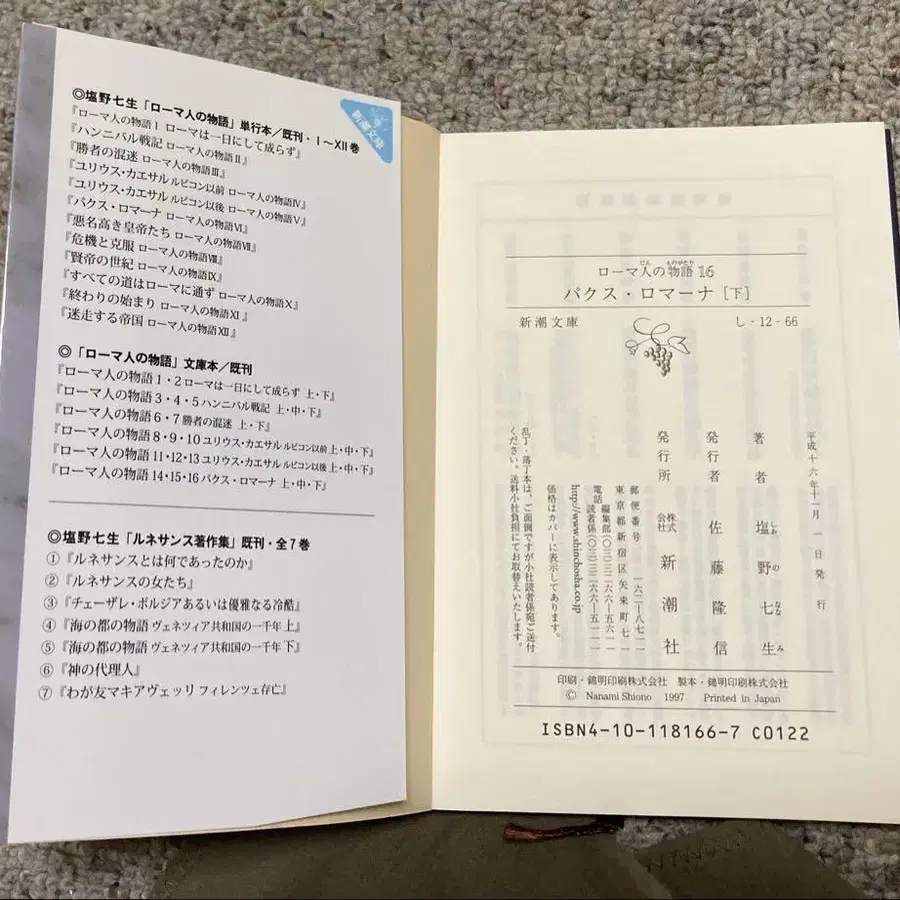 新潮文庫
◎塩野七生「ローマ人の物語」単行本/既刊・Ⅰ〜XII巻
『ローマ人の物語Ⅰ ローマは一日にして成らず』
『ハンニバル戦記 ローマ人の物語Ⅱ』
『勝者の混迷 ローマ人の物語Ⅲ』
『ユリウス・カエサル ルビコン以前 ローマ人の物語Ⅳ』
『ユリウス・カエサル ルビコン以後 ローマ人の物語Ⅴ』
『パクス・ロマーナ ローマ人の物語Ⅵ』
『悪名高き皇帝たち ローマ人の物語Ⅶ』
『危機と克服 ローマ人の物語Ⅷ』
『賢帝の世紀 ローマ人の物語Ⅸ』
『すべての道はローマに通ず ローマ人の物語Ⅹ』
『終わりの始まり ローマ人の物語XI』
『迷走する帝国 ローマ人の物語XII』
◎「ローマ人の物語」文庫本/既刊
『ローマ人の物語1・2 ローマは一日にして成らず 上・下』
『ローマ人の物語3・4・5 ハンニバル戦記 上・中・下』
『ローマ人の物語6・7 勝者の混迷 上・下』
『ローマ人の物語8・9・10 ユリウス・カエサル ルビコン以前 上・中・下』
『ローマ人の物語11・12・13 ユリウス・カエサル ルビコン以後 上・中・下』
『ローマ人の物語14・15・16 パクス・ロマーナ 上・中・下』
◎塩野七生「ルネサンス著作集」既刊・全7巻
①『ルネサンスとは何であったのか』
②『ルネサンスの女たち』
③『チェーザレ・ボルジアあるいは優雅なる冷酷』
④『海の都の物語 ヴェネツィア共和国の一千年 上』
⑤『海の都の物語 ヴェネツィア共和国の一千年 下』
⑥『神の代理人』
⑦『わが友マキアヴェッリ フィレンツェ存亡』
ローマ人の物語16
パクス・ロマーナ[下]
新潮文庫 し-12-66
平成十六年十一月一日発行
著者 塩野七生
発行者 佐藤隆信
発行所 株式会社 新潮社
郵便番号 一六二―八七一一
東京都新宿区矢来町七一
電話 編集部(〇三)三二六六―五四四〇
読者係(〇三)三二六六―五一一一
http://www.shinchosha.co.jp
価格はカバーに表示してあります。
乱丁・落丁本は、ご面倒ですが小社読者係宛ご送付
ください。送料小社負担にてお取替えいたします。
印刷・錦明印刷株式会社 製本・錦明印刷株式会社
© Nanami Shiono 1997 Printed in Japan
ISBN4-10-118166-7 C0122